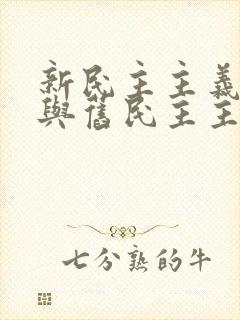 新民主主義
與舊民主主
七分熟的牛